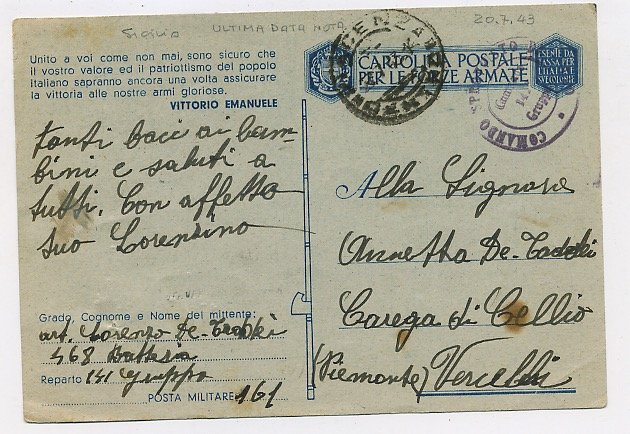 Sicilia
ULTIMA DATA NOTA
20.7.43
Unito a voi come non mai, sono sicuro che
il vostro valore ed il patriottismo del popolo
italiano sapranno ancora una volta assicurare
la vittoria alle nostre armi gloriose.
VITTORIO EMANUELE
CARTOLINA POSTALE
PER LE FORZE ARMATE
ESENTE DA
TASSA PER
L'ITALIA E
COMANDO
Gruppo
tanti baci ai bam-
bini e saluti a
tutti. Con affetto
tuo Lorenzino
Alla Signora
Annetta De-
Carega di Cellio
(Piemonte) Vercelli
Grado, Cognome e Nome del mittente:
art. Lorenzo De-
468 Batteria
Reparto 141 Gruppo
POSTA MILITARE 161